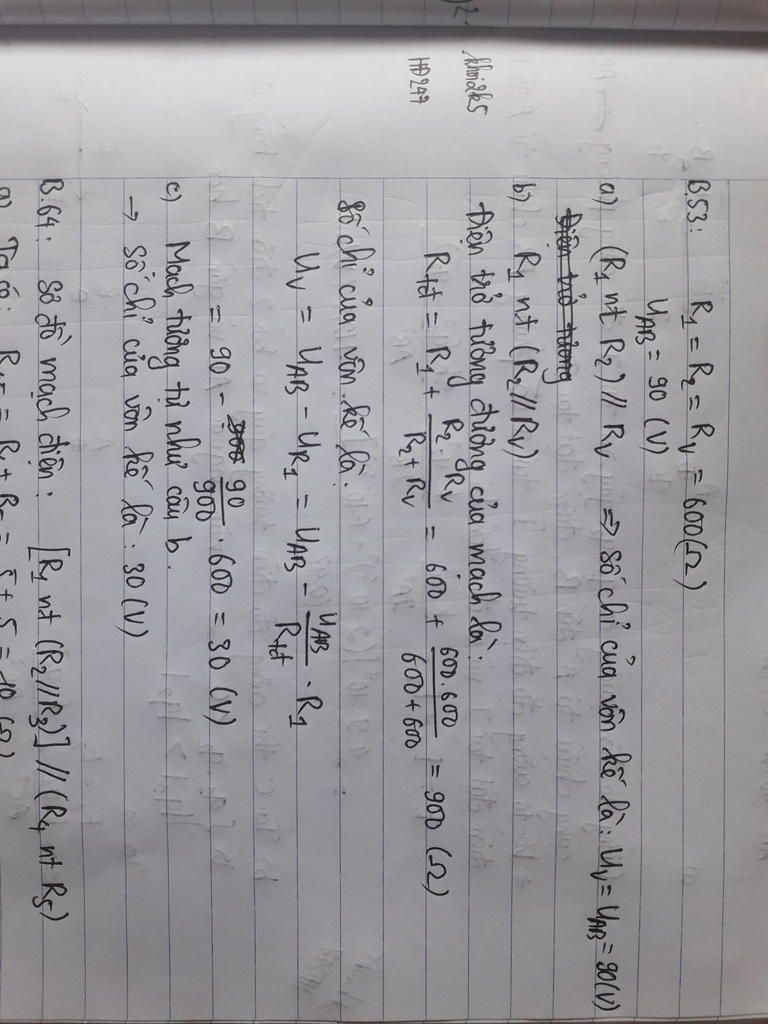 khoi2k5
HĐ247
B.53: R1 = R2 = RV = 600(Ω)
UAB = 90 (V)
a) (R1 nt R2) // RV ⇒ số chỉ của vôn kế là: UV = UAB = 90(V)
Điện trở tương
b) R1 nt (R2 // RV)
Điện trở tương đương của mạch là:
Rtđ = R1 + R2 . RV / R2 + RV = 600 + 600.600 / 600+600 = 900 (Ω)
Số chỉ của vôn kế là:
UV = UAB - UR1 = UAB - UAB / Rtđ . R1
= 90 - 90 / 900 . 600 = 30 (V)
c) Mạch tương tự như câu b.
→ Số chỉ của vôn kế là: 30 (V)
B.64: Sơ đồ mạch điện: [R1 nt (R2 // R3)] // (R4 nt R5)
a) Ta có: R45 = R4 + R5 = 5 + 5 = 10 (Ω)